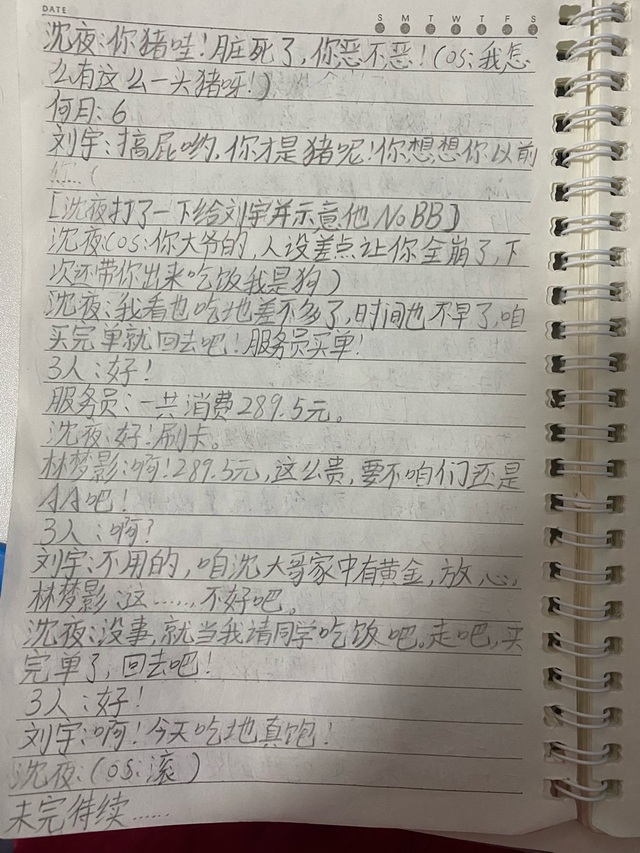 DATE
S M T W T F S
沈夜:你猪哇!脏死了,你恶不恶!(OS:我怎
么有这么一头猪呀!)
何月:6
刘宇:搞屁哟,你才是猪呢!你想想你以前
……(
[沈夜打了一下给刘宇并示意他NoBB]
沈夜(OS:你大爷的,人设差点让你全崩了,下
次还带你出来吃饭我是狗)
沈夜:我看也吃地差不多了,时间也不早了,咱
买完单就回去吧!服务员买单!
3人:好!
服务员:一共消费289.5元。
沈夜:好!刷卡。
林梦影:啊!289.5元,这么贵,要不咱们还是
AA吧!
3人:啊?
刘宇:不用的,咱沈大哥家中有黄金,放心。
林梦影:这……不好吧。
沈夜:没事,就当我请同学吃饭吧。走吧,买
完单了,回去吧!
3人:好!
刘宇:啊!今天吃地真饱!
沈夜:(OS:滚)
未完待续……